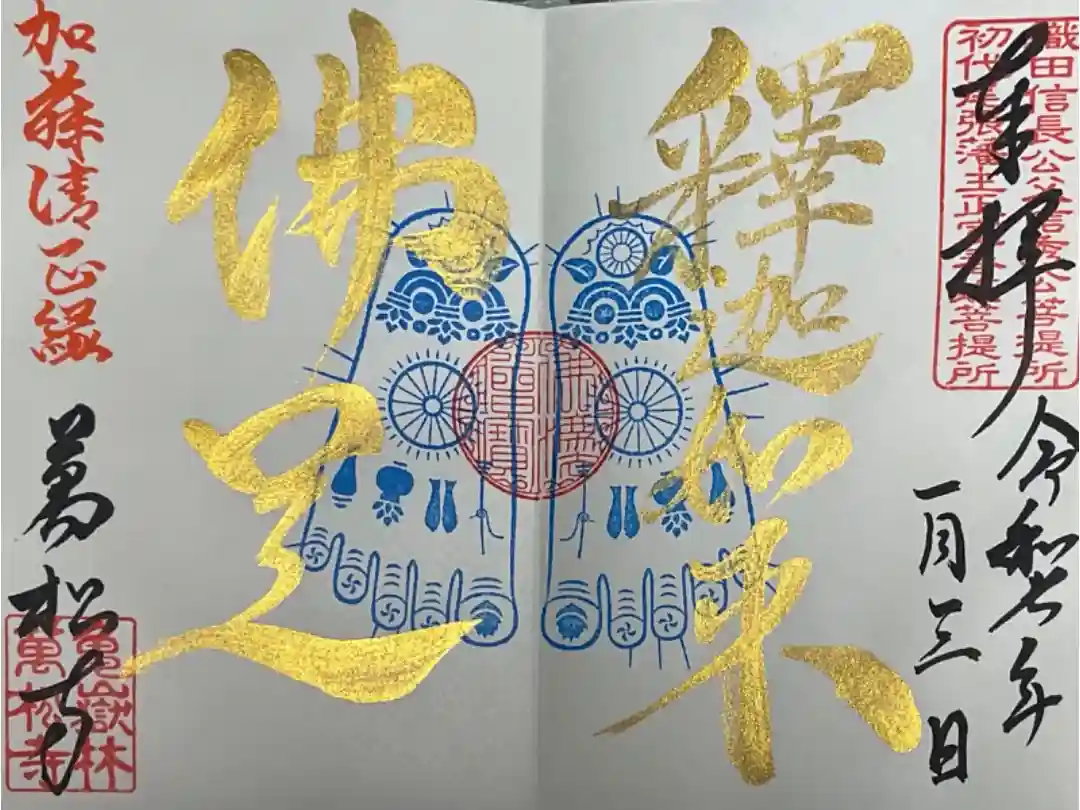 織田信長公父信秀公菩提所
初代尾張藩主正室春姫菩提所
奉拝
令和七年
一月三日
釋迦如来
佛足
佛法
僧寶
加藤清正縁
萬松寺
亀嶽林
萬松寺